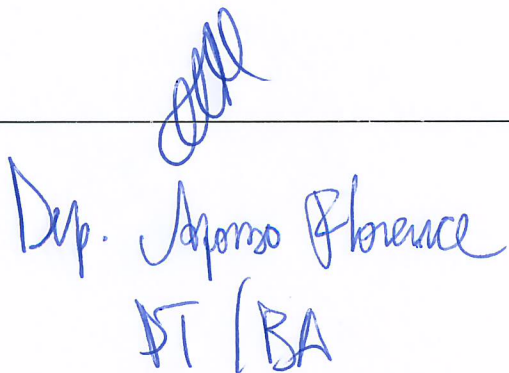 Dep. Afonso Florence
PT / BA